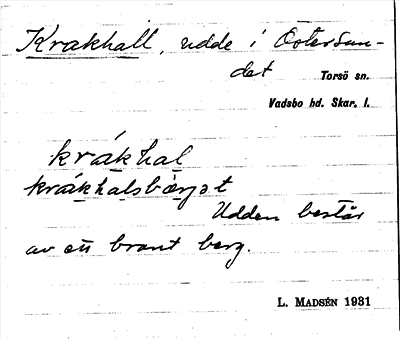 Krakhall, udde i Östersun-
det
Torsö sn.
Vadsbo hd. Skar. l.
krákhal
krákhalsbærjət
Udden består
av ett brant berg.
L. MADSÉN 1931